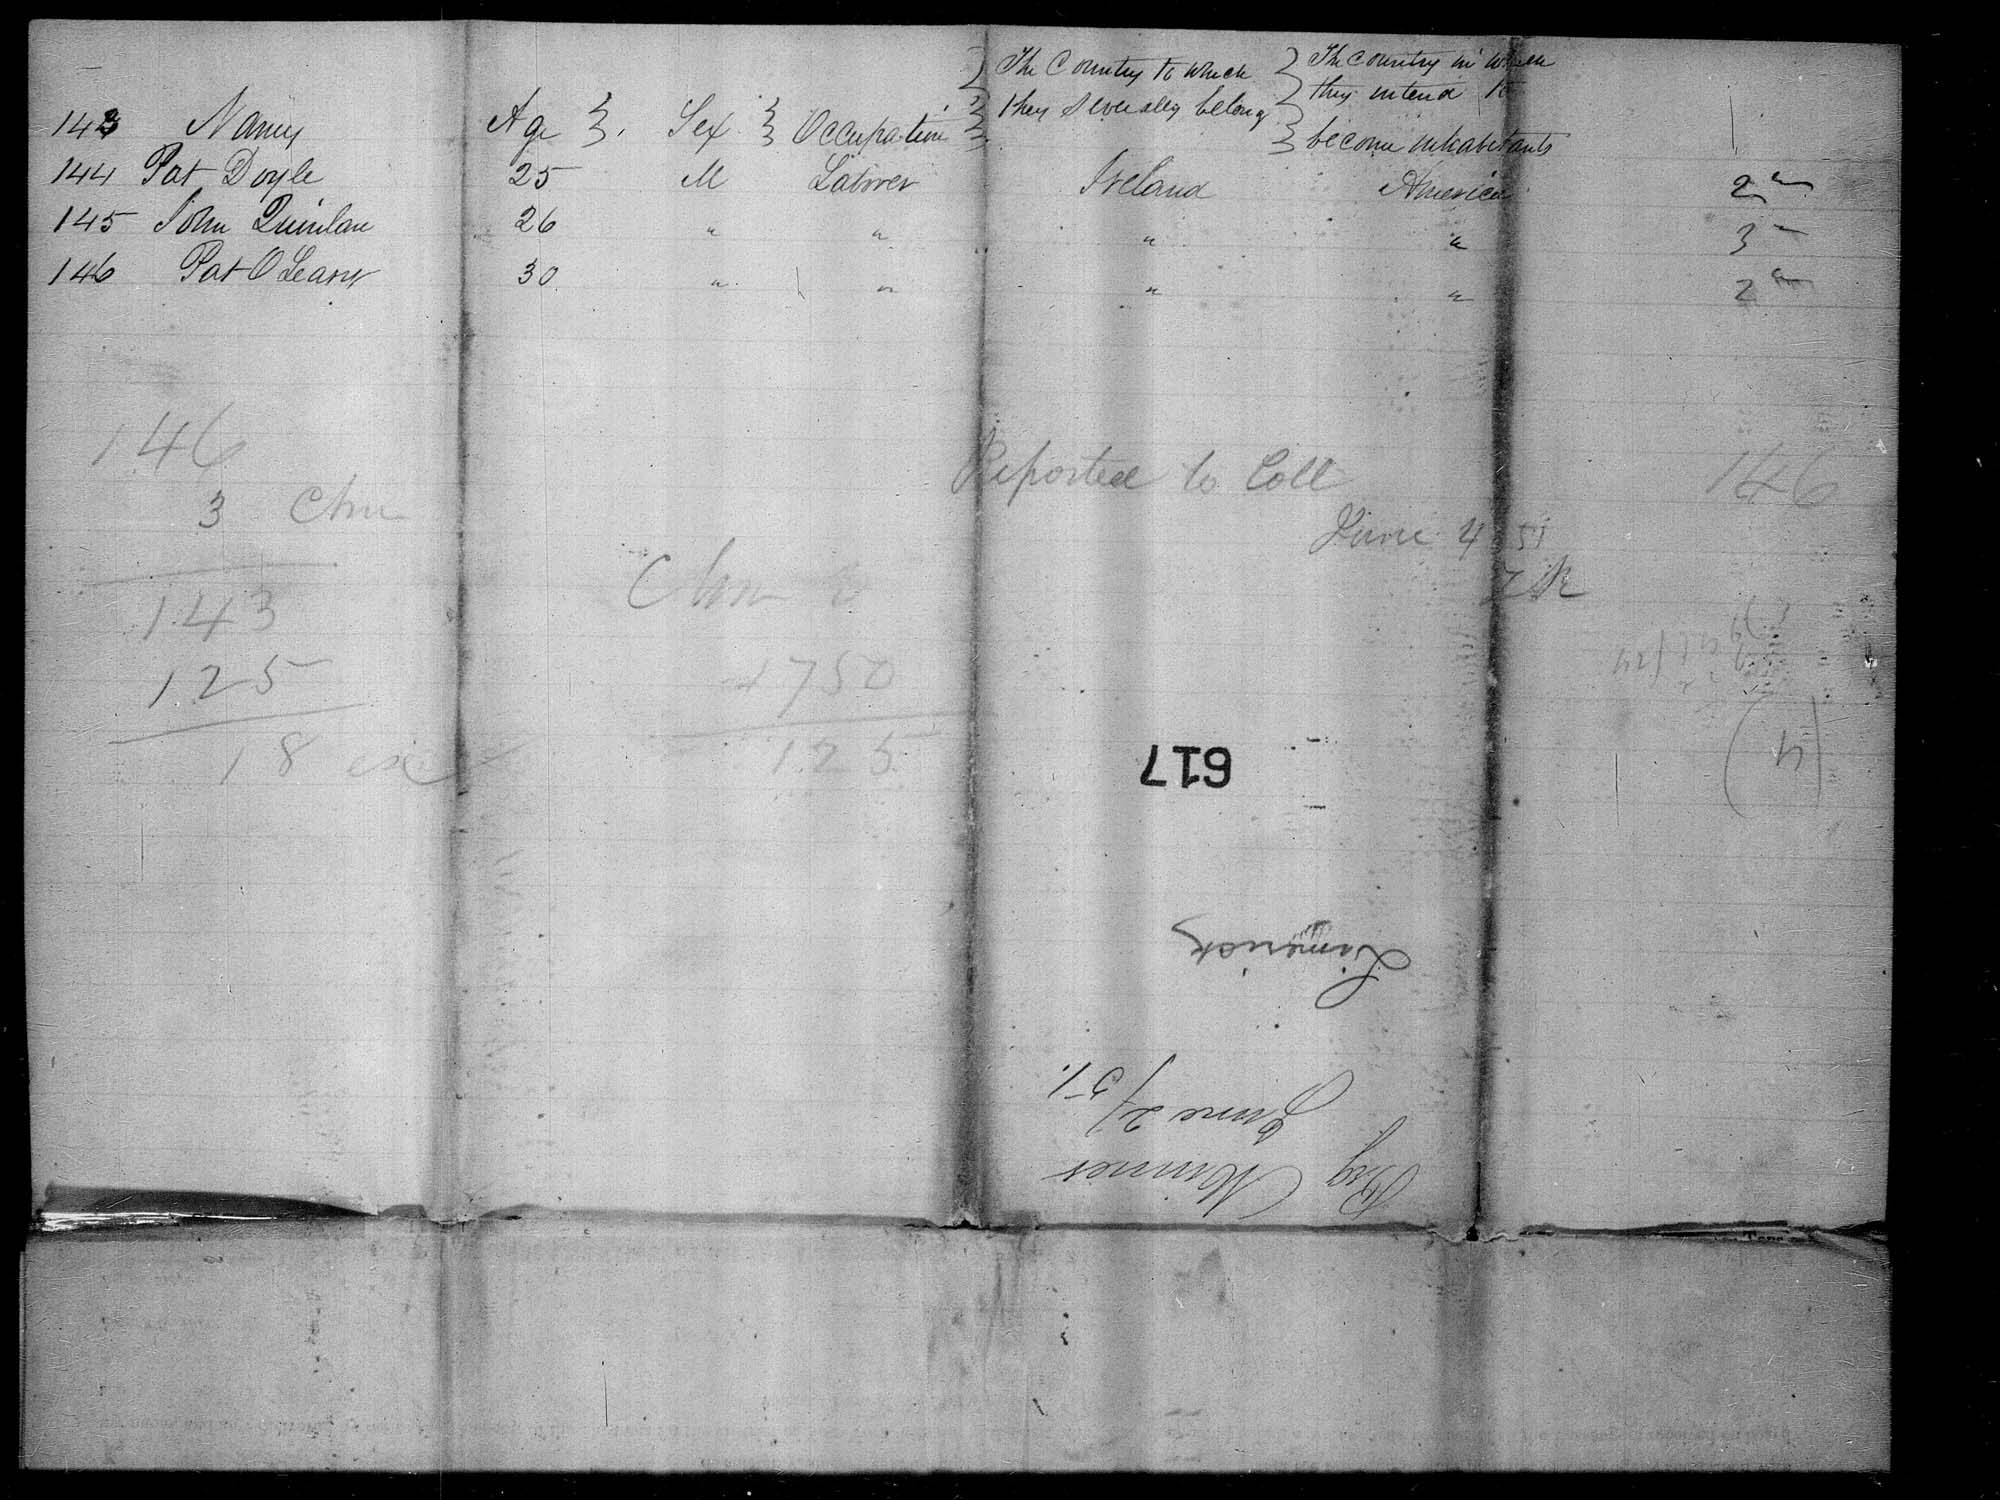 The Country to which } The country in which
they severally belong } they intend to
143 Names Age } Sex } Occupation } become inhabitants
144 Pat Doyle 25 M Labourer Ireland America 2
145 John Quinlan 26 " " " " 3
146 Pat O Leary 30 " " " " 2
146
3 Chn
143
125
18 ex
Reported to Coll
June 4 51
146
Chn
4750
125
(4)
617
Limerick
June 2/51.
Brig Minnes